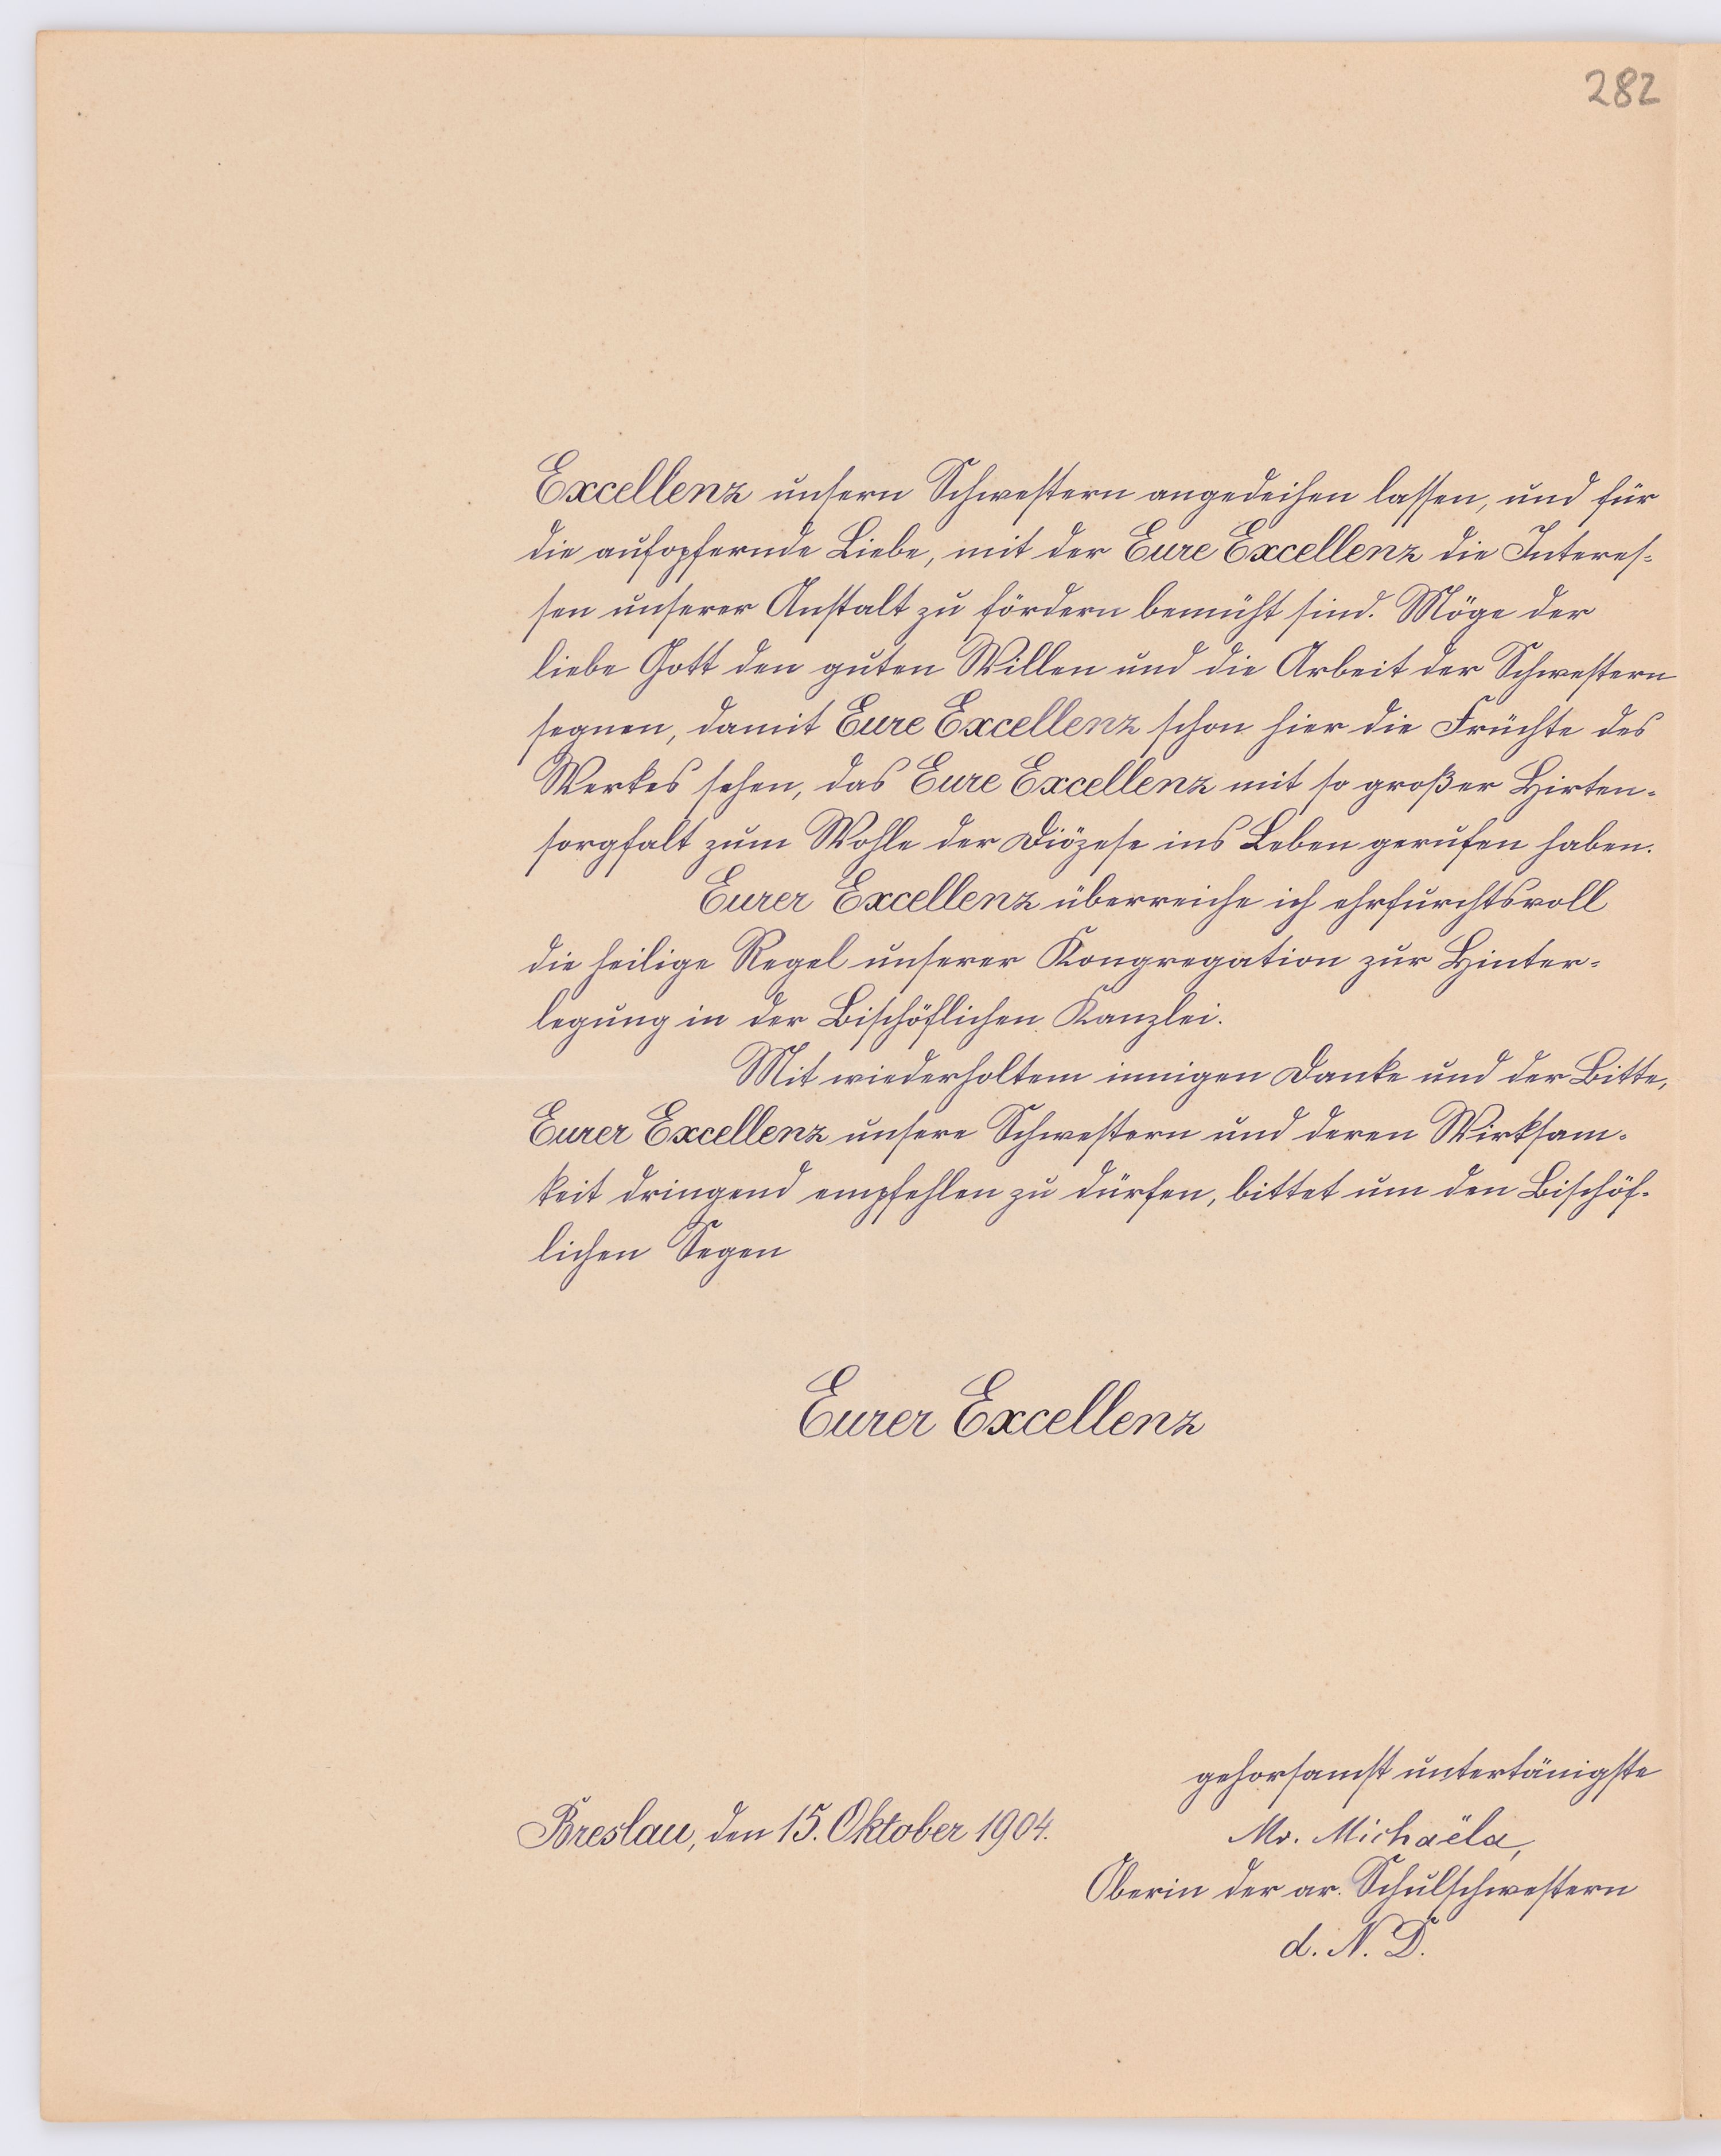 282
Excellenz unsern Schwestern angedeihen lassen, und für
die aufopfernde Liebe, mit der Eure Excellenz die Interes-
sen unserer Anstalt zu fördern bemüht sind. Möge der
liebe Gott den guten Willen und die Arbeit der Schwestern
segnen, damit Eure Excellenz schon hier die Früchte des
Werkes sehen, das Eure Excellenz mit so großer Hirten-
sorgfalt zum Wohle der Diözese ins Leben gerufen haben.
Eurer Excellenz überreiche ich ehrfurchtsvoll
die heilige Regel unserer Kongregation zur Hinter-
legung in der Bischöflichen Kanzlei.
Mit wiederholtem innigen Danke und der Bitte,
Eurer Excellenz unsere Schwestern und deren Wirksam-
keit dringend empfehlen zu dürfen, bittet um den Bischöf-
lichen Segen
Eurer Excellenz
gehorsamst untertänigste
Breslau, den 15. Oktober 1904.
M. Michaëla,
Oberin der ar. Schulschwestern
d. N. D.